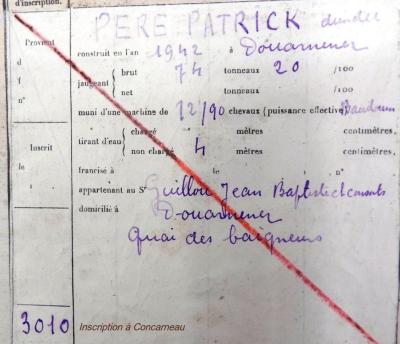 d'inscription.
PERE PATRICK dundee
Provient
construit en l'an 1942 à Douarnenez
d
brut 74 tonneaux 20 /100
f
jaugeant
n°
net tonneaux /100
muni d'une machine de 72/90 chevaux (puissance effective) Baudouin
chargé mètres centimètres.
Inscrit
tirant d'eau
le
non chargé 4 mètres centimètres.
francisé à le n°
appartenant au Sr Guillou Jean Baptiste et consorts
domicilié à Douarnenez
Quai des baigneurs
3010 Inscription à Concarneau